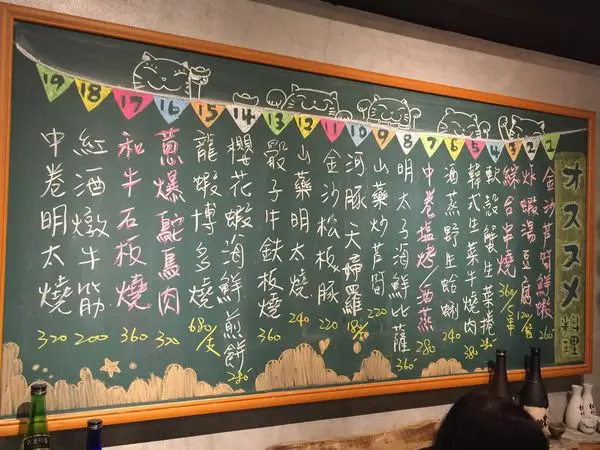 オススメ料理
1 金沙芦筍鮮蝦 260
2 炸蝦湯豆腐
3 綜合串燒 360/5串
4 軟殼蟹生菜捲
5 韓式生菜牛燒肉
6 酒蒸野生蛤蜊 240
7 中卷塩烤/酒蒸 280
8 明太子海鮮比薩 360
9 山藥炒芦筍 220
10 河豚天婦羅
11 金沙松板豚 220
12 山藥明太燒 240
13 骰子牛鉄板燒 360
14 櫻花蝦海鮮煎餅 280
15 龍蝦博多燒 680/支
16 蔥爆鴕鳥肉 320
17 和牛石板燒 360
18 紅酒燉牛筋 200
19 中卷明太燒 320